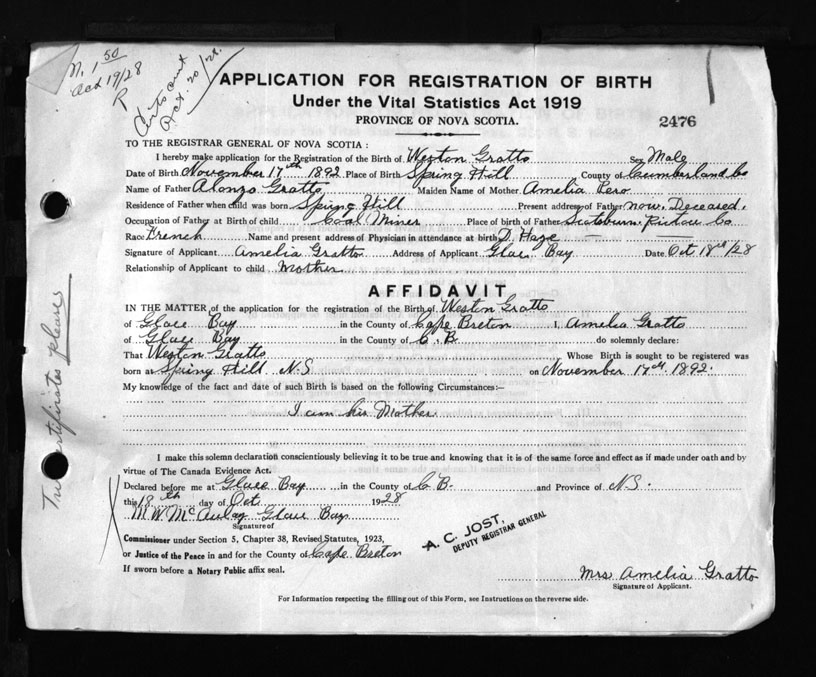 N. 1 50
Oct 19/28
R
Oct. 20/28.
APPLICATION FOR REGISTRATION OF BIRTH
Under the Vital Statistics Act 1919
PROVINCE OF NOVA SCOTIA.
2476
TO THE REGISTRAR GENERAL OF NOVA SCOTIA:
I hereby make application for the Registration of the Birth of Weston Gratto Sex Male
Date of Birth November 17th 1892 Place of Birth Spring Hill County of Cumberland Co
Name of Father Alonzo Gratto Maiden Name of Mother Amelia Pero
Residence of Father when child was born Spring Hill Present address of Father now Deceased.
Occupation of Father at Birth of child Coal Miner Place of birth of Father Scotsburn Pictou Co
Race French Name and present address of Physician in attendance at birth D. Haze —
Signature of Applicant Amelia Gratto Address of Applicant Glace Bay Date Oct 18th/28
Relationship of Applicant to child Mother
AFFIDAVIT
IN THE MATTER of the application for the registration of the Birth of Weston Gratto
of Glace Bay in the County of Cape Breton I, Amelia Gratto
of Glace Bay in the County of C. B do solemnly declare:
That Weston Gratto Whose Birth is sought to be registered was
born at Spring Hill N.S on November 17th. 1892.
My knowledge of the fact and date of such Birth is based on the following Circumstances:—
I am his Mother
I make this solemn declaration conscientiously believing it to be true and knowing that it is of the same force and effect as if made under oath and by
virtue of The Canada Evidence Act.
Declared before me at Glace Bay in the County of C B. and Province of N.S.
this 18th day of Oct 1928
M. W. McAulay Glace Bay
Signature of
Commissioner under Section 5, Chapter 38, Revised Statutes, 1923,
or Justice of the Peace in and for the County of Cape Breton
If sworn before a Notary Public affix seal.
A. C. JOST,
DEPUTY REGISTRAR GENERAL
Mrs Amelia Gratto
Signature of Applicant.
For Information respecting the filling out of this Form, see Instructions on the reverse side.
certificates please